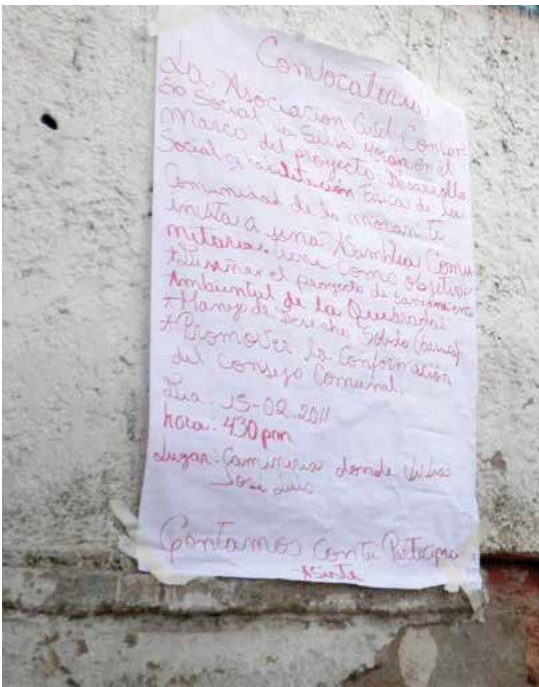 Convocatoria
La Asociacion Civil, Consor-
cio Social la Silsa Moran en el
Marco del proyecto: Desarrollo
Social y habilitación Fisica de la
Comunidad de la moran te
invita a una Asamblea Comu
nitaria. tiene como objetivo
el proyecto de Saneamiento
Ambiental de las Quebradas
+ Manejo de Desecho Solido (basura)
+ Promover la Conformación
del consejo Comunal.
Dia: 15-02-2011
hora: 430 pm
Lugar: Camineria donde
Jose Luis
Contamos con tu
Asiste